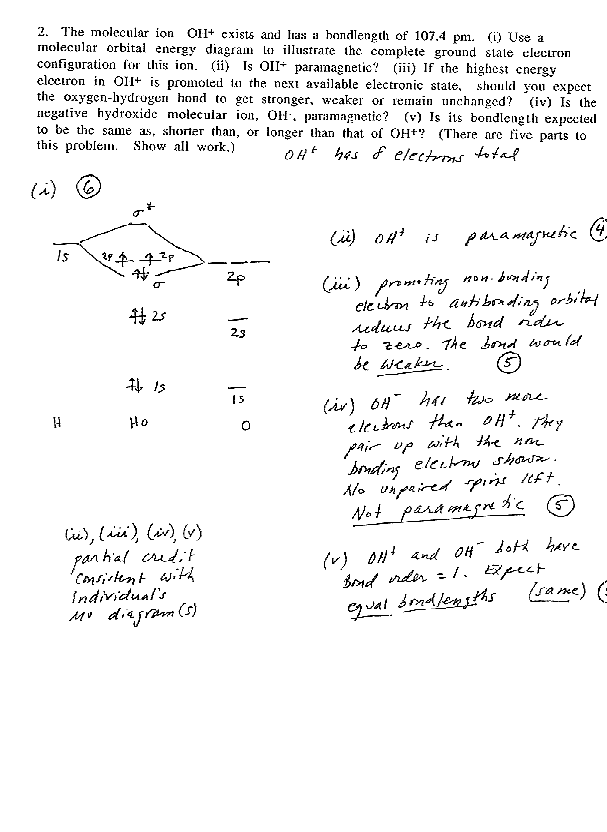 2. The molecular ion OH+ exists and has a bondlength of 107.4 pm. (i) Use a
molecular orbital energy diagram to illustrate the complete ground state electron
configuration for this ion. (ii) Is OH+ paramagnetic? (iii) If the highest energy
electron in OH+ is promoted to the next available electronic state, should you expect
the oxygen-hydrogen bond to get stronger, weaker or remain unchanged? (iv) Is the
negative hydroxide molecular ion, OH-, paramagnetic? (v) Is its bondlength expected
to be the same as, shorter than, or longer than that of OH+? (There are five parts to
this problem. Show all work.)
OH+ has 8 electrons total
(i) 6
σ*
1s
2p 2p
σ
2p
2s
2s
1s
1s
H HO O
(ii) OH+ is paramagnetic 4
(iii) promoting non-bonding
electron to antibonding orbital
reduces the bond order
to zero. The bond would
be weaker. 5
(iv) OH- has two more
electrons than OH+. They
pair up with the non
bonding electrons shown.
No unpaired spins left.
Not paramagnetic 5
(v) OH+ and OH- both have
bond order = 1. Expect
equal bondlengths (same)
(ii), (iii), (iv), (v)
partial credit
consistent with
Individual's
MO diagram(s)